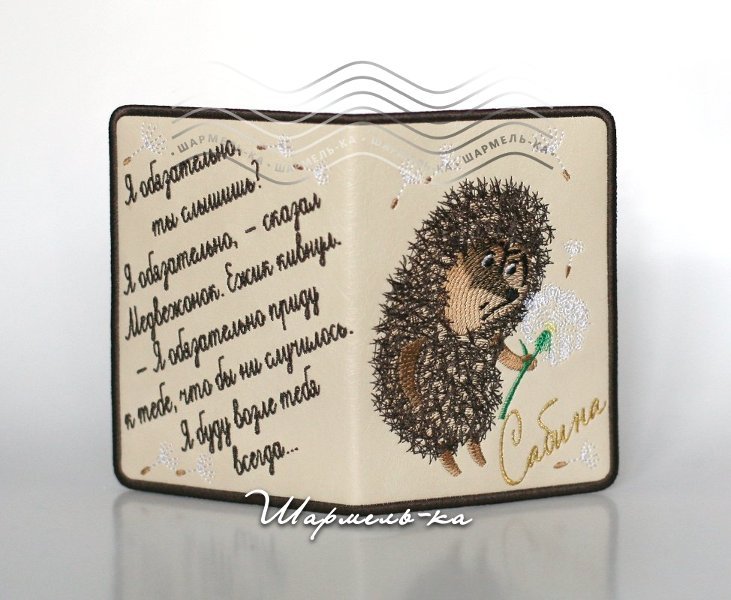 · ШАРМЕЛЬ-КА · ШАРМЕЛЬ-КА · ШАРМЕЛЬ-КА ·
Я обязательно,
ты слышишь?
Я обязательно, – сказал
Медвежонок. Ежик кивнул.
– Я обязательно приду
к тебе, что бы ни случилось.
Я буду возле тебя
всегда...
Сабина
Шармель-ка